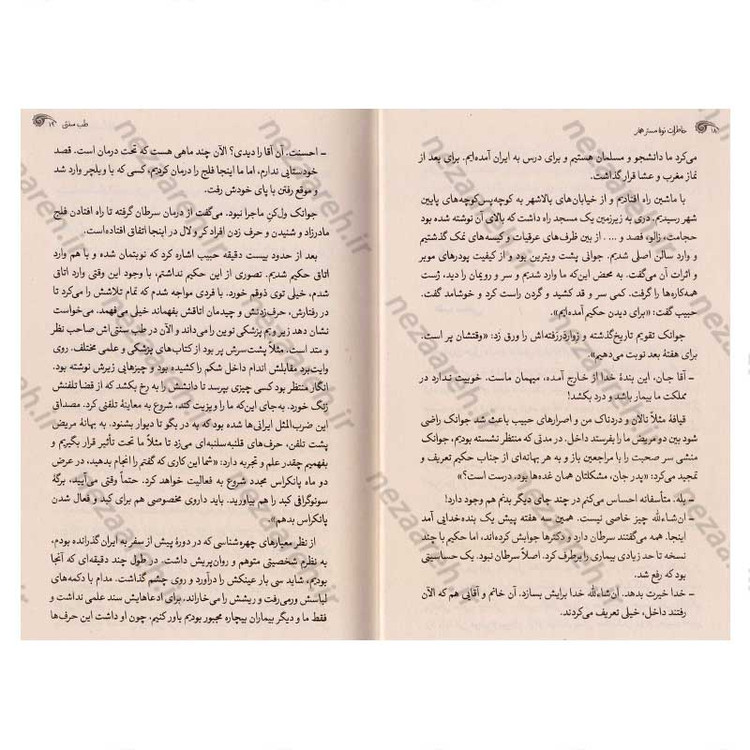 ۱۸ خاطرات نوهٔ مستر همفر
می‌کرد ما دانشجو و مسلمان هستیم و برای درس به ایران آمده‌ایم. برای بعد از
نماز مغرب و عشا قرار گذاشت.
با ماشین راه افتادیم و از خیابان‌های بالاشهر به کوچه‌پس‌کوچه‌های پایین
شهر رسیدیم. دری به زیرزمین یک مسجد راه داشت که بالای آن نوشته شده بود
حجامت، زالو، فصد و ... . از بین ظرف‌های عرقیات و کیسه‌های نمک گذشتیم
و وارد سالن اصلی شدیم. جوانی پشت ویترین بود و از کیفیت پودرهای مویر
و اثرات آن می‌گفت. به محض این‌که ما وارد شدیم و سر و رویمان را دید، ژست
همه‌کاره‌ها را گرفت. کمی سر و قد کشید و گردن راست کرد و خوشامد گفت.
حبیب گفت: «برای دیدن حکیم آمده‌ایم».
جوانک تقویم تاریخ‌گذشته و زواردررفته‌اش را ورق زد: «وقتشان پر است.
برای هفتهٔ بعد نوبت می‌دهیم».
– آقا جان، این بندهٔ خدا از خارج آمده، میهمان ماست. خوبیت ندارد در
مملکت ما بیمار باشد و درد بکشد!
قیافهٔ مثلاً نالان و دردناک من و اصرارهای حبیب باعث شد جوانک راضی
شود بین دو مریض ما را بفرستد داخل. در مدتی که منتظر نشسته بودیم، جوانک
منشی سر صحبت را با مراجعین باز و به هر بهانه‌ای از جناب حکیم تعریف و
تمجید می‌کرد: «پدر جان، مشکلتان همان غده‌ها بود. درست است؟»
– بله. متأسفانه احساس می‌کنم در چند جای دیگر بدنم هم وجود دارد!
– ان‌شاءالله چیز خاصی نیست. همین سه هفته پیش یک بنده‌خدایی آمد
اینجا. همه می‌گفتند سرطان دارد و دکترها جوابش کرده‌اند، اما حکیم با چند
نسخه تا حد زیادی بیماری را برطرف کرد. اصلاً سرطان نبود. یک حساسیتی
بود که رفع شد.
– خدا خیرت بدهد. ان‌شاءالله خدا برایش بسازد. آن خانم و آقایی هم که الآن
رفتند داخل، خیلی تعریف می‌کردند.
طب سنتی ۱۹
– احسنت. آن آقا را دیدی؟ الآن چند ماهی هست که تحت درمان است. قصد
خودستایی ندارم، اما ما اینجا فلج را درمان کردیم، کسی که با ویلچر وارد شد
و موقع رفتن با پای خودش رفت.
جوانک ول‌کن ماجرا نبود. می‌گفت از درمان سرطان گرفته تا راه افتادن فلج
مادرزاد و شنیدن و حرف زدن افراد کر و لال در اینجا اتفاق افتاده‌است.
بعد از حدود بیست دقیقه حبیب اشاره کرد که نوبتمان شده و با هم وارد
اتاقی حکیم شدیم. تصوری از این حکیم نداشتم، با وجود این وقتی وارد اتاق
شدم، خیلی توی ذوقم خورد. با فردی مواجه شدم که تمام تلاشش را می‌کرد تا
در رفتارش، حرف‌زدنش و چیدمان اتاقش بفهماند خیلی می‌فهمد. می‌خواست
نشان دهد زیر و بم پزشکی نوین را می‌داند و الآن در طب سنتی‌اش صاحب نظر
و متد است. مثلاً پشت‌سرش پر بود از کتاب‌های پزشکی و علمی مختلف. روی
وایت‌برد مقابلش اندام داخل شکم را کشیده بود و چیزهایی زیرش نوشته بود.
انگار منتظر بود کسی چیزی بپرسد تا دانشش را به رخ بکشد که از قضا تلفنش
زنگ خورد. به‌جای این‌که ما را ویزیت کند، شروع به معاینهٔ تلفنی کرد. مصداق
این ضرب‌المثل ایرانی‌ها شده بود که به در بگو تا دیوار بشنود. به بهانهٔ مریض
پشت تلفن، حرف‌های قلنبه‌سلنبه‌ای می‌زد تا مثلاً ما تحت تأثیر قرار بگیریم و
بفهمیم چقدر علم و تجربه دارد: «شما این کاری که گفتم را انجام بدهید، در عرض
دو ماه پانکراس مجدد شروع به فعالیت خواهد کرد. حتماً وقتی می‌آیید، برگهٔ
سونوگرافی کبد را هم بیاورید. باید داروی مخصوصی هم برای کبد و فعال شدن
پانکراس بدهم».
از نظر معیارهای چهره‌شناسی که در دورهٔ پیش از سفر به ایران گذرانده بودم،
به نظرم شخصیتی متوهم و روان‌پریش داشت. در طول چند دقیقه‌ای که آنجا
بودیم، شاید سی بار عینکش را درآورد و روی چشم گذاشت. مدام با دکمه‌های
لباسش ور می‌رفت و ریشش را می‌خاراند. برای ادعاهایش سند علمی نداشت و
فقط ما و دیگر بیماران بیچاره مجبور بودیم باور کنیم، چون او داشت این حرف‌ها
nezaareh.ir